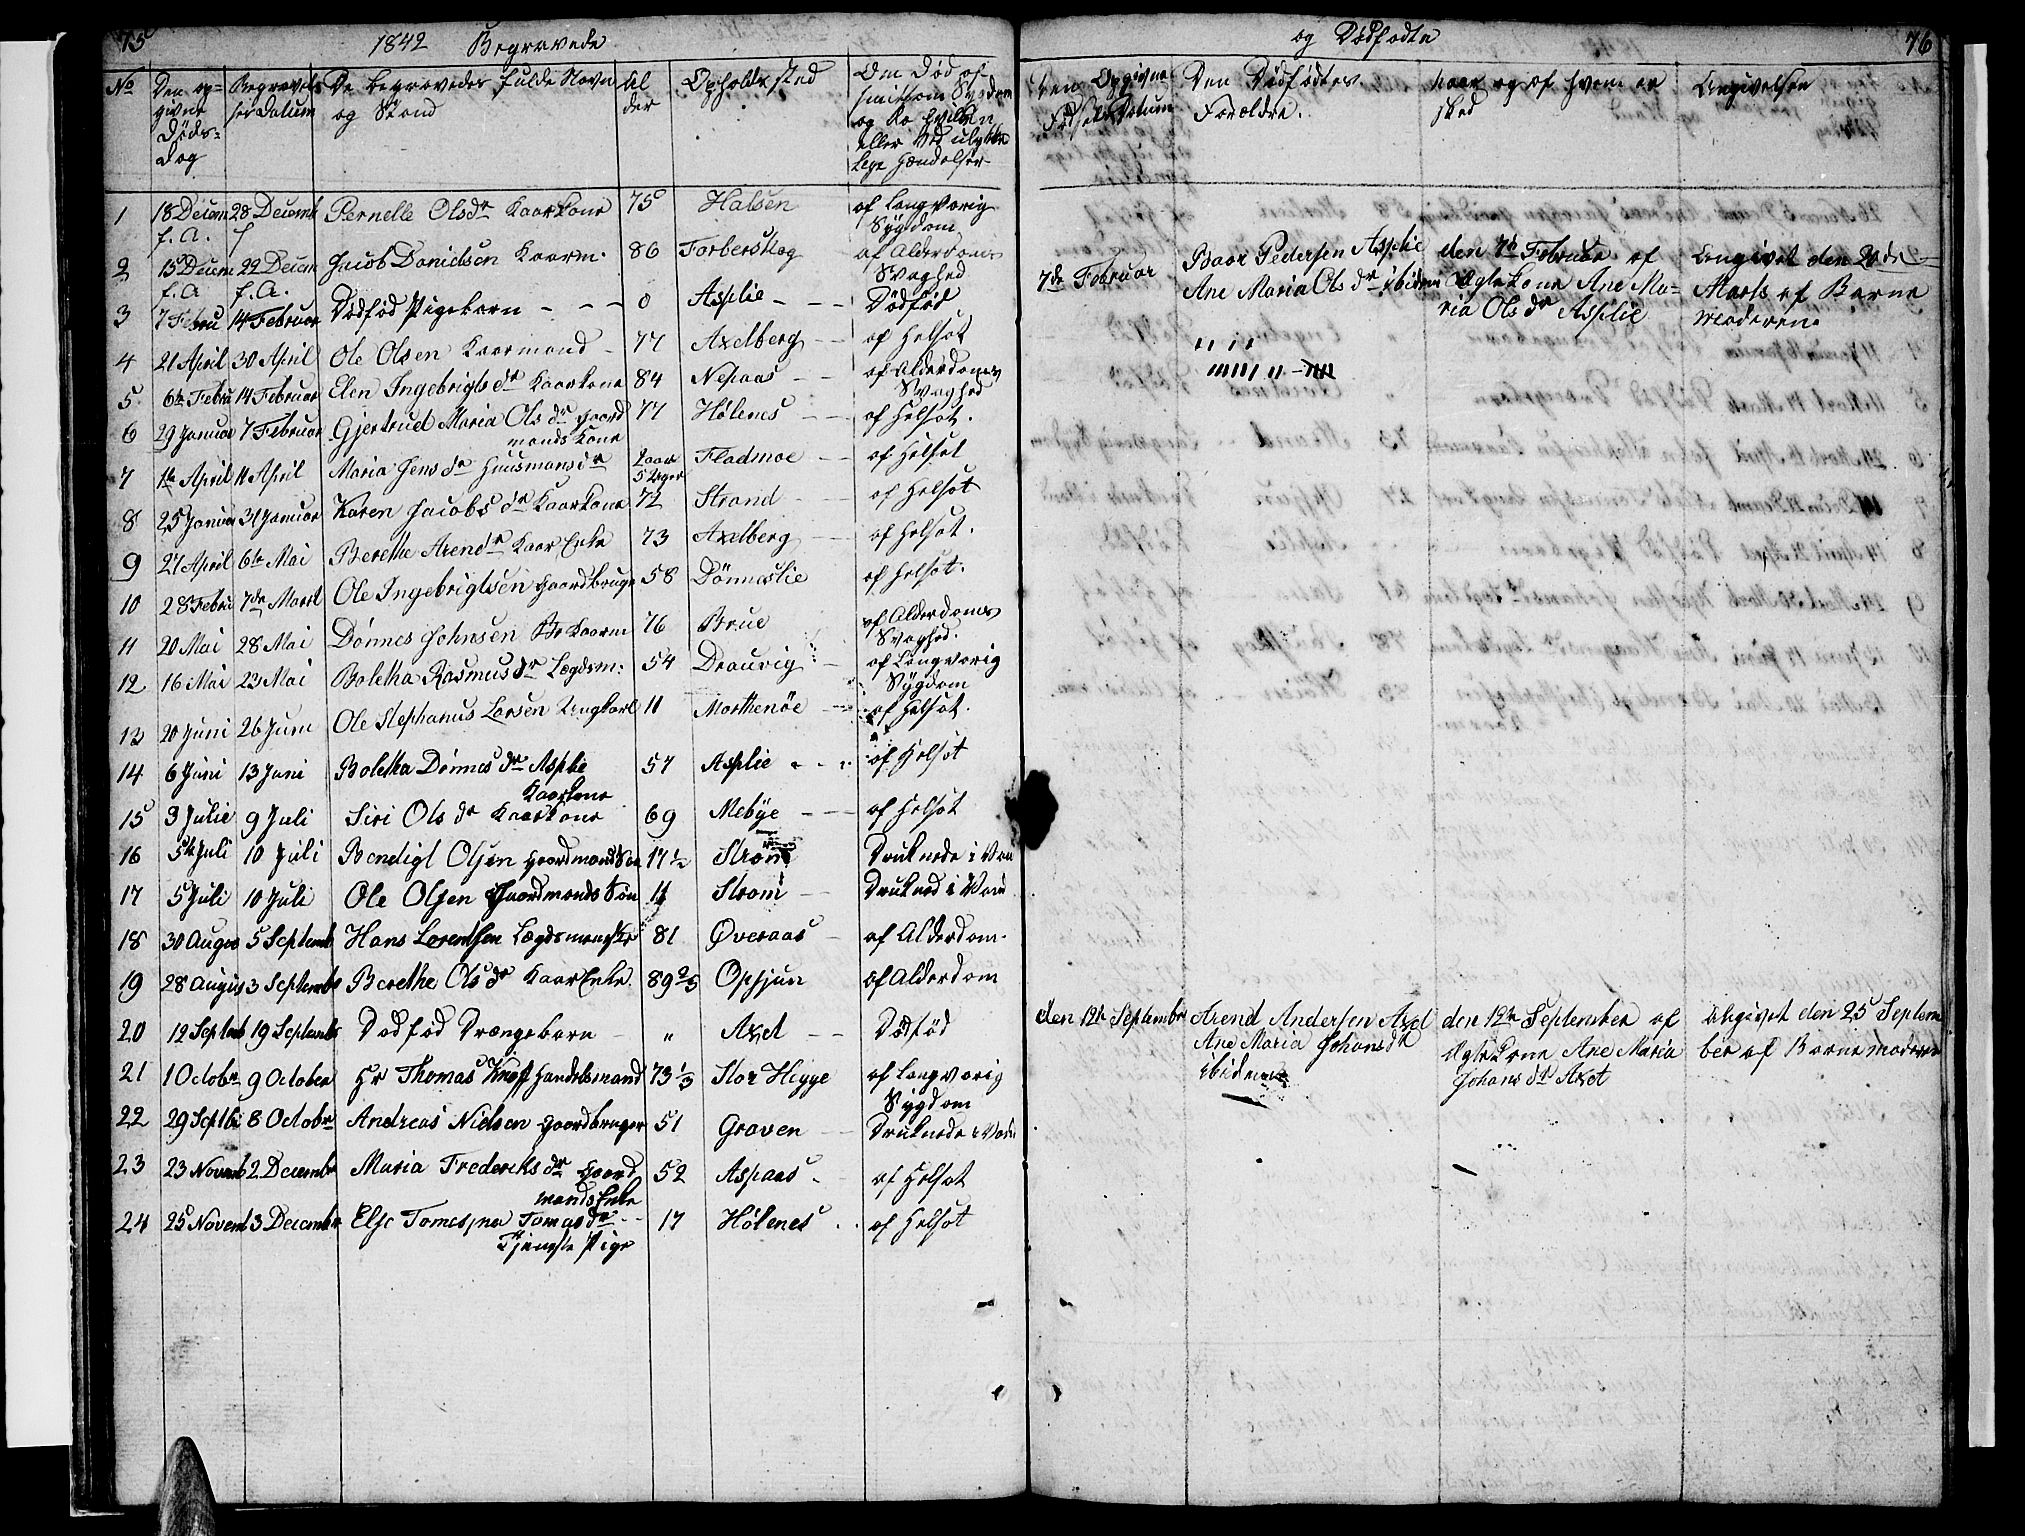 75
1842 Begravede
No
Den op-
givne
Døds-
Dag
Begravel-
ser Datum
De begravedes fulde Navn
og Stand
Al
der
Opholdssted
Om Død af
smitsom Sygdom
og da hvilken
eller ved ulykke
lige Hændelser
1 18 Decem 28 Decemb Pernelle Olsdr Kaarkone 75 Halsen af Langvarig
f. A. f Sygdom
2 15 Decem 22 Decem Jacob Danielsen Kaarm. 86 Forberskog af Alderdoms
f. A f. A. Svaghed
3 7 Febru 14 Februar Dødfød Pigebarn - - - 0 Asplie - - - Dødfød
4 21 April 30 April Ole Olsen Kaarmand - 77 Axelberg - - af Helsot
5 6te Febru 14 Februar Elen Ingebrigts dr Kaarkone 84 Nepaas - - af Alderdoms
Svaghed
6 29 Januar 7 Februar Gjertrud Maria Ols dr Gaard 77 Hølenes - - af Helsot.
mands Kone
7 1te April 11 April Maria Jens dr Huusmands dr 2 aar Fladmoe - - af Helsot
5 Uger
8 25 Januar 31 Januar Karen Jacobs dr Kaarkone 72 Strand - - af Helsot
9 27 April 6te Mai Berethe Arendr Kaar Enke 73 Axelberg - - af Helsot.
10 28 Febru 7de Marts Ole Ingebrigtsen Gaardbruger 58 Dønneslie af Helsot.
11 20 Mai 28 Mai Dønnes Johnsen Br Kaarm 76 Brue af Alderdoms
Svaghed.
12 16 Mai 23 Mai Boletha Rasmus dr Lægdsm: 54 Drauvig - af Langvarig
Sygdom
13 20 Juni 26 Juni Ole Stephanus Larsen Ungkarl 11 Morthenøe - af Helsot.
14 6 Juni 13 Juni Boletha Dønnes dr Asplie 57 Asplie - - - af Helsot
Kaarkone
15 3 Julie 9 Juli Siri Ols dr Kaarkone 69 Mebye - - - af Helsot
16 5te Juli 10 Juli Bendigt Olsen Gaardmands Søn 17½ Strøm Druknede i Van
17 5 Juli 10 Juli Ole Olsen Gaardmands Søn 11 Strøm - Druknede i Van
18 30 Augus 5 Septemb Hans Lorentsen Lægdsmand 81 Øveraas - af Alderdom.
19 28 Augus 3 Septembr Berethe Ols dr Kaar Enke. 89 2/3 Opsjun af Alderdom
20 12 Septemb 19 Septembr Dødfød Drængebarn - " Axet - Dødfød
21 1 Octobr 9 October Hr Thomas Knoff Handelsmand 73 1/3 Stor Higge af Langvarig
Sygdom
22 29 Septbr 8 October Andreas Nielsen Gaardbruger 51 Graven - Druknede i Vand
23 23 Novemb 2 Decembr Maria Frederiks dr Gaard 52 Aspaas - af Helsot
mands Enke
24 25 Novemb 3 Decembr Else Tomesine Tomas dr - - 17 Hølenes . af Helsot
Tjeneste Pige
og Dødfødte
76
Den Opgivne
Fødsels Datum
Den Dødfødtes
Forældre.
Naar og af hvem er
sked
Angivelsen
7de Februar
Baar Pedersen Asplie
Ane Maria Ols dr ibidem
den 7de Februar af
Ægtekone Ane Ma=
ria Ols dr Asplie
Angivet den 20de
Marts af Barne
moderen.
den 12te September
Arend Andersen Axet
Ane Maria Johans dr
ibidem
den 12te September af
Ægtekone Ane Maria
Johans dr Axet
Angivet den 25 Septem
ber af Barnemoderen